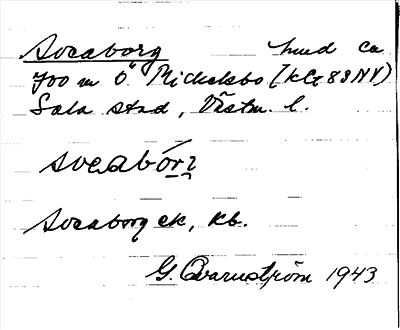 Sveaborg hmd ca
700 m Ö Mickelsbo (kbl 83NV)
Sala stad, Västm. l.
sveabórj
Sveaborg ek, kb.
G. Qvarnström 1943